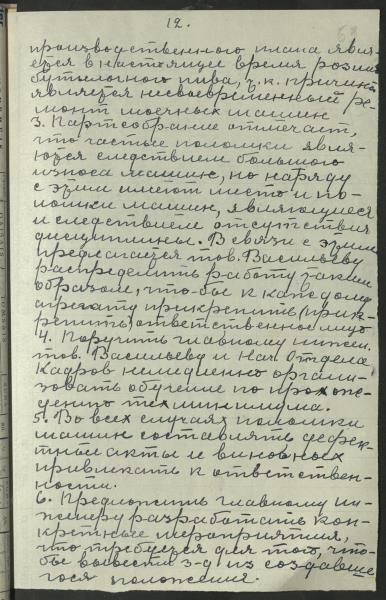 12.
производственного плана явля-
ется в настоящее время розлив
бутылочного пива, т.к. причиной
является несвоевременный ре-
монт моечных машин
3. Партсобрание отмечает,
что частые поломки явля-
ются следствием большого
износа машин, но наряду
с этим имеют место и по-
ломки машин, являющиеся
и следствием отсутствия
дисциплины. В связи с этим
предлагается тов. Васильеву
распределить работу таким
образом, что-бы к каждому
агрегату прикрепить (прик-
репить) ответственное лицо
4. Поручить главному инжен.
тов. Васильеву и Нач. Отдела
Кадров немедленно органи-
зовать обучение по прохож-
дению техминимума.
5. Во всех случаях поломки
машин составлять дефек-
тные акты и виновных
привлекать к ответствен-
ности.
6. Предложить главному ин-
женеру разработать кон-
кретные мероприятия,
что требуется для того, что-
бы вывести з-д из создавше-
гося положения.